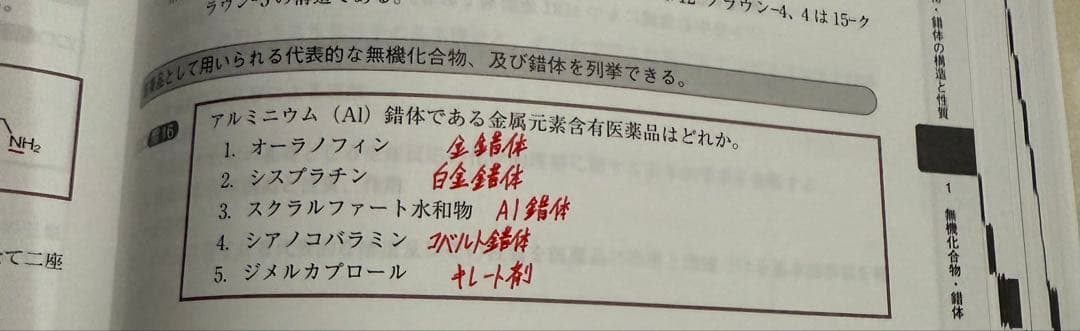 ラウン-5の構造である。
ラウン-4、4は15-ク
品として用いられる代表的な無機化合物、及び錯体を列挙できる。
16
アルミニウム（Al）錯体である金属元素含有医薬品はどれか。
1. オーラノフィン 金錯体
2. シスプラチン 白金錯体
3. スクラルファート水和物 Al錯体
4. シアノコバラミン コバルト錯体
5. ジメルカプロール キレート剤
NH₂
て二座
・錯体の構造と性質
1 無機化合物・錯体